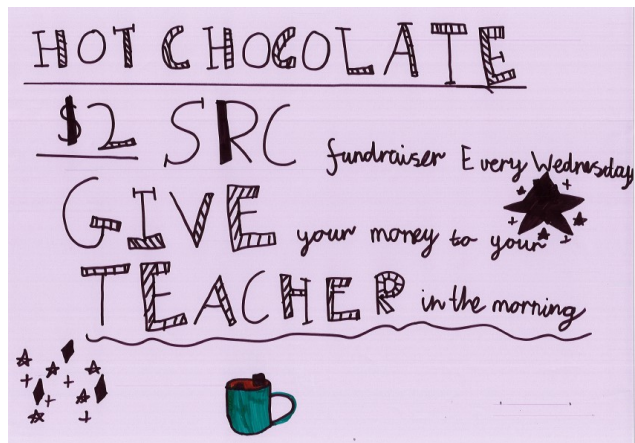 HOT CHOCOLATE
$2 SRC fundraiser Every Wednesday
GIVE your money to your
TEACHER in the morning